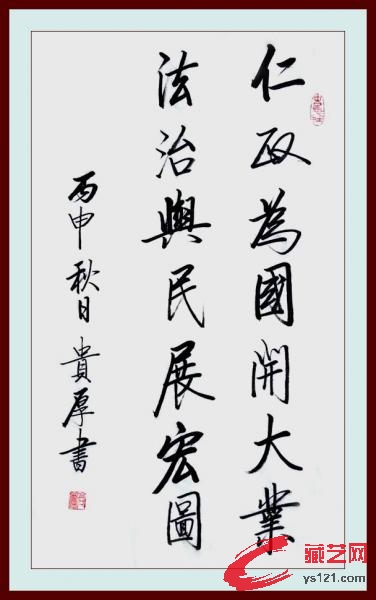 仁政為國開大業
法治與民展宏圖
丙申秋日貴厚書
藏艺网
ys121.com